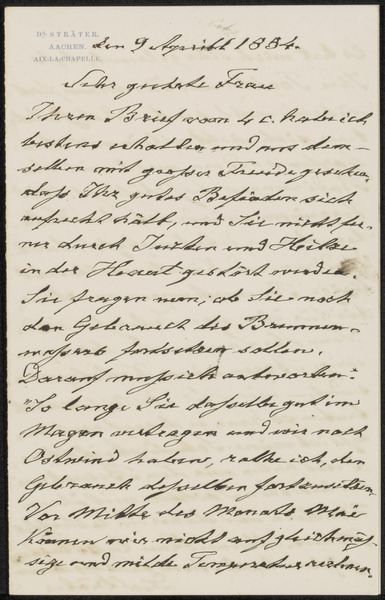 Dr. STRÄTER,
AACHEN.
AIX-LA-CHAPELLE.
den 9 Aprill 1884.
Sehr geehrte Frau
Ihren Brief vom 4 c. habe ich
bestens erhalten und aus dem-
selben mit grosser Freude gesehen,
dass Ihr gutes Befinden sich
aufrecht hält, und Sie nicht fer-
ner durch Jucken und Hitze
in der Haut gestört werden.
Sie fragen nun, ob Sie noch
den Gebrauch des Brunnen-
wassers fortsetzen sollen.
Darauf muss ich antworten:
"So lange Sie dasselbe gut im
Magen vertragen und wir noch
Ostwind haben, rathe ich, den
Gebrauch desselben fortzusetzen.
Vor Mitte des Monats
können wir nicht auf gleichmäs-
sige und milde Temperatur rechnen.